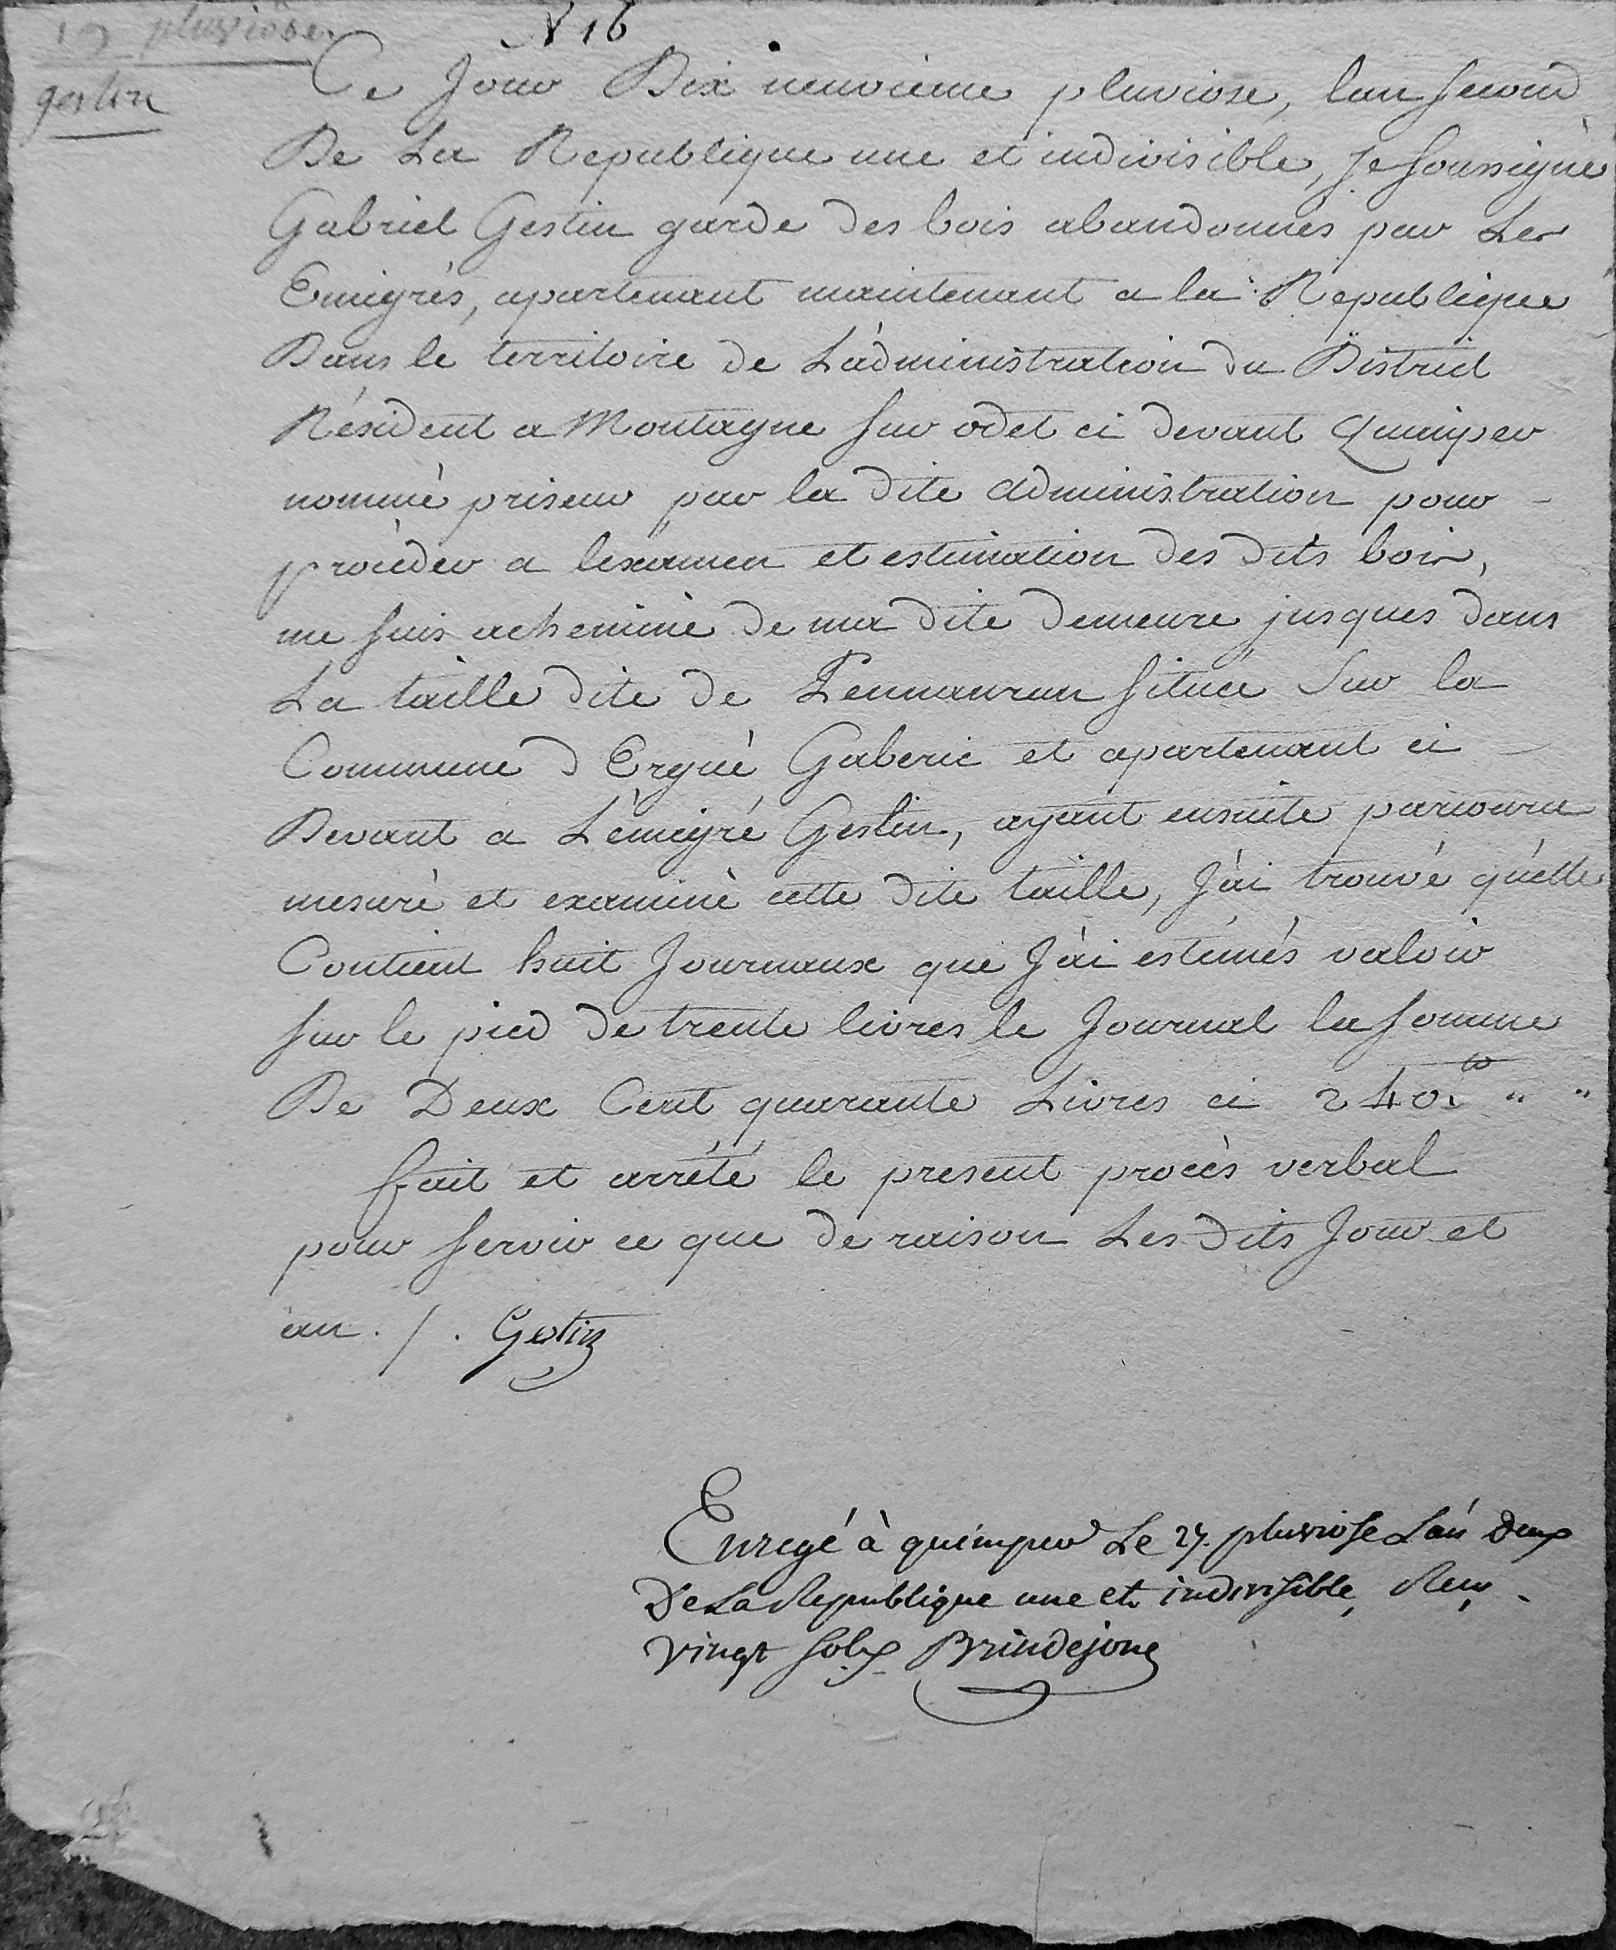 19 pluviôse
N 16
gestin
Ce Jour Dix neuvieme pluviose, lan second
De La Republique une et indivisible, Je soussigné
Gabriel Gestin garde des bois abandonnés par Les
Emigrés, apartenant maintenant a la Republique
Dans le territoire de L'administration du District
Résident a Montagne sur odet ci devant Quimper
nommé priseur par la dite administration pour
procéder a lexamen et estimation des dits bois,
me suis acheminé de ma dite demeure jusques dans
La taille dite de Pennanrun située Sur la
Commune d Ergué Gaberic et apartenant ci
Devant a L'émigré Geslin, ayant ensuite parcouru
mesuré et examiné cette dite taille, J'ai trouvé qu'elle
Contient huit Journaux que J'ai estimés valoir
sur le pied de trente livres le Journal la somme
De Deux Cent quarante Livres ci 240 " "
fait et arrété le present procès verbal
pour servir ce que de raison Les dits Jour et
an ./. Gestin
Enregé à quimper Le 27. pluviose L'an deux
De La Republique une et indivisible, Reçu
vingt sols Brindejonc